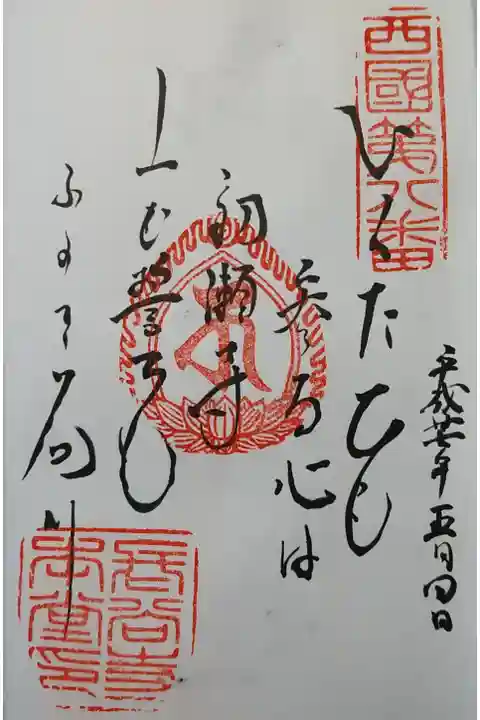 西國第八番
平成廿七年五月四日
いくたひも
参る心は
初瀬寺
山も誓ひも
ふかき谷川
長谷寺
本堂印